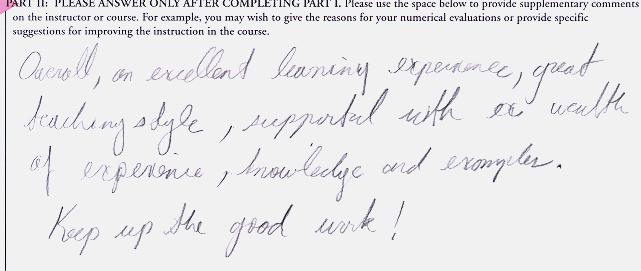 PART II: PLEASE ANSWER ONLY AFTER COMPLETING PART I. Please use the space below to provide supplementary comments
on the instructor or course. For example, you may wish to give the reasons for your numerical evaluations or provide specific
suggestions for improving the instruction in the course.
Overall, an excellent learning experience, great
teaching style, supported with a wealth
of experience, knowledge and examples.
Keep up the good work!